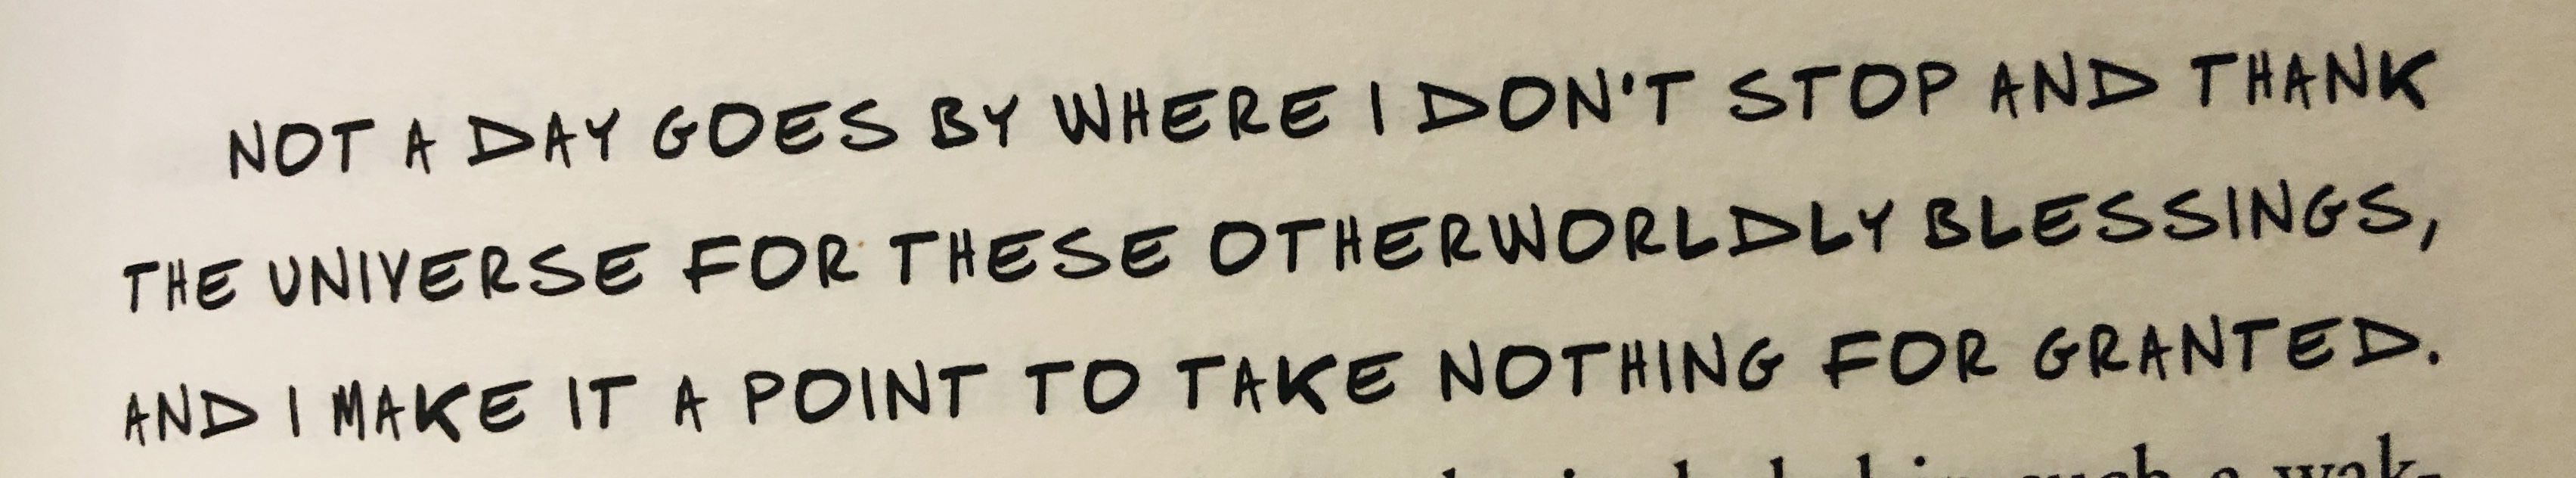 NOT A DAY GOES BY WHERE I DON'T STOP AND THANK
THE UNIVERSE FOR THESE OTHERWORLDLY BLESSINGS,
AND I MAKE IT A POINT TO TAKE NOTHING FOR GRANTED.
in such a wak-